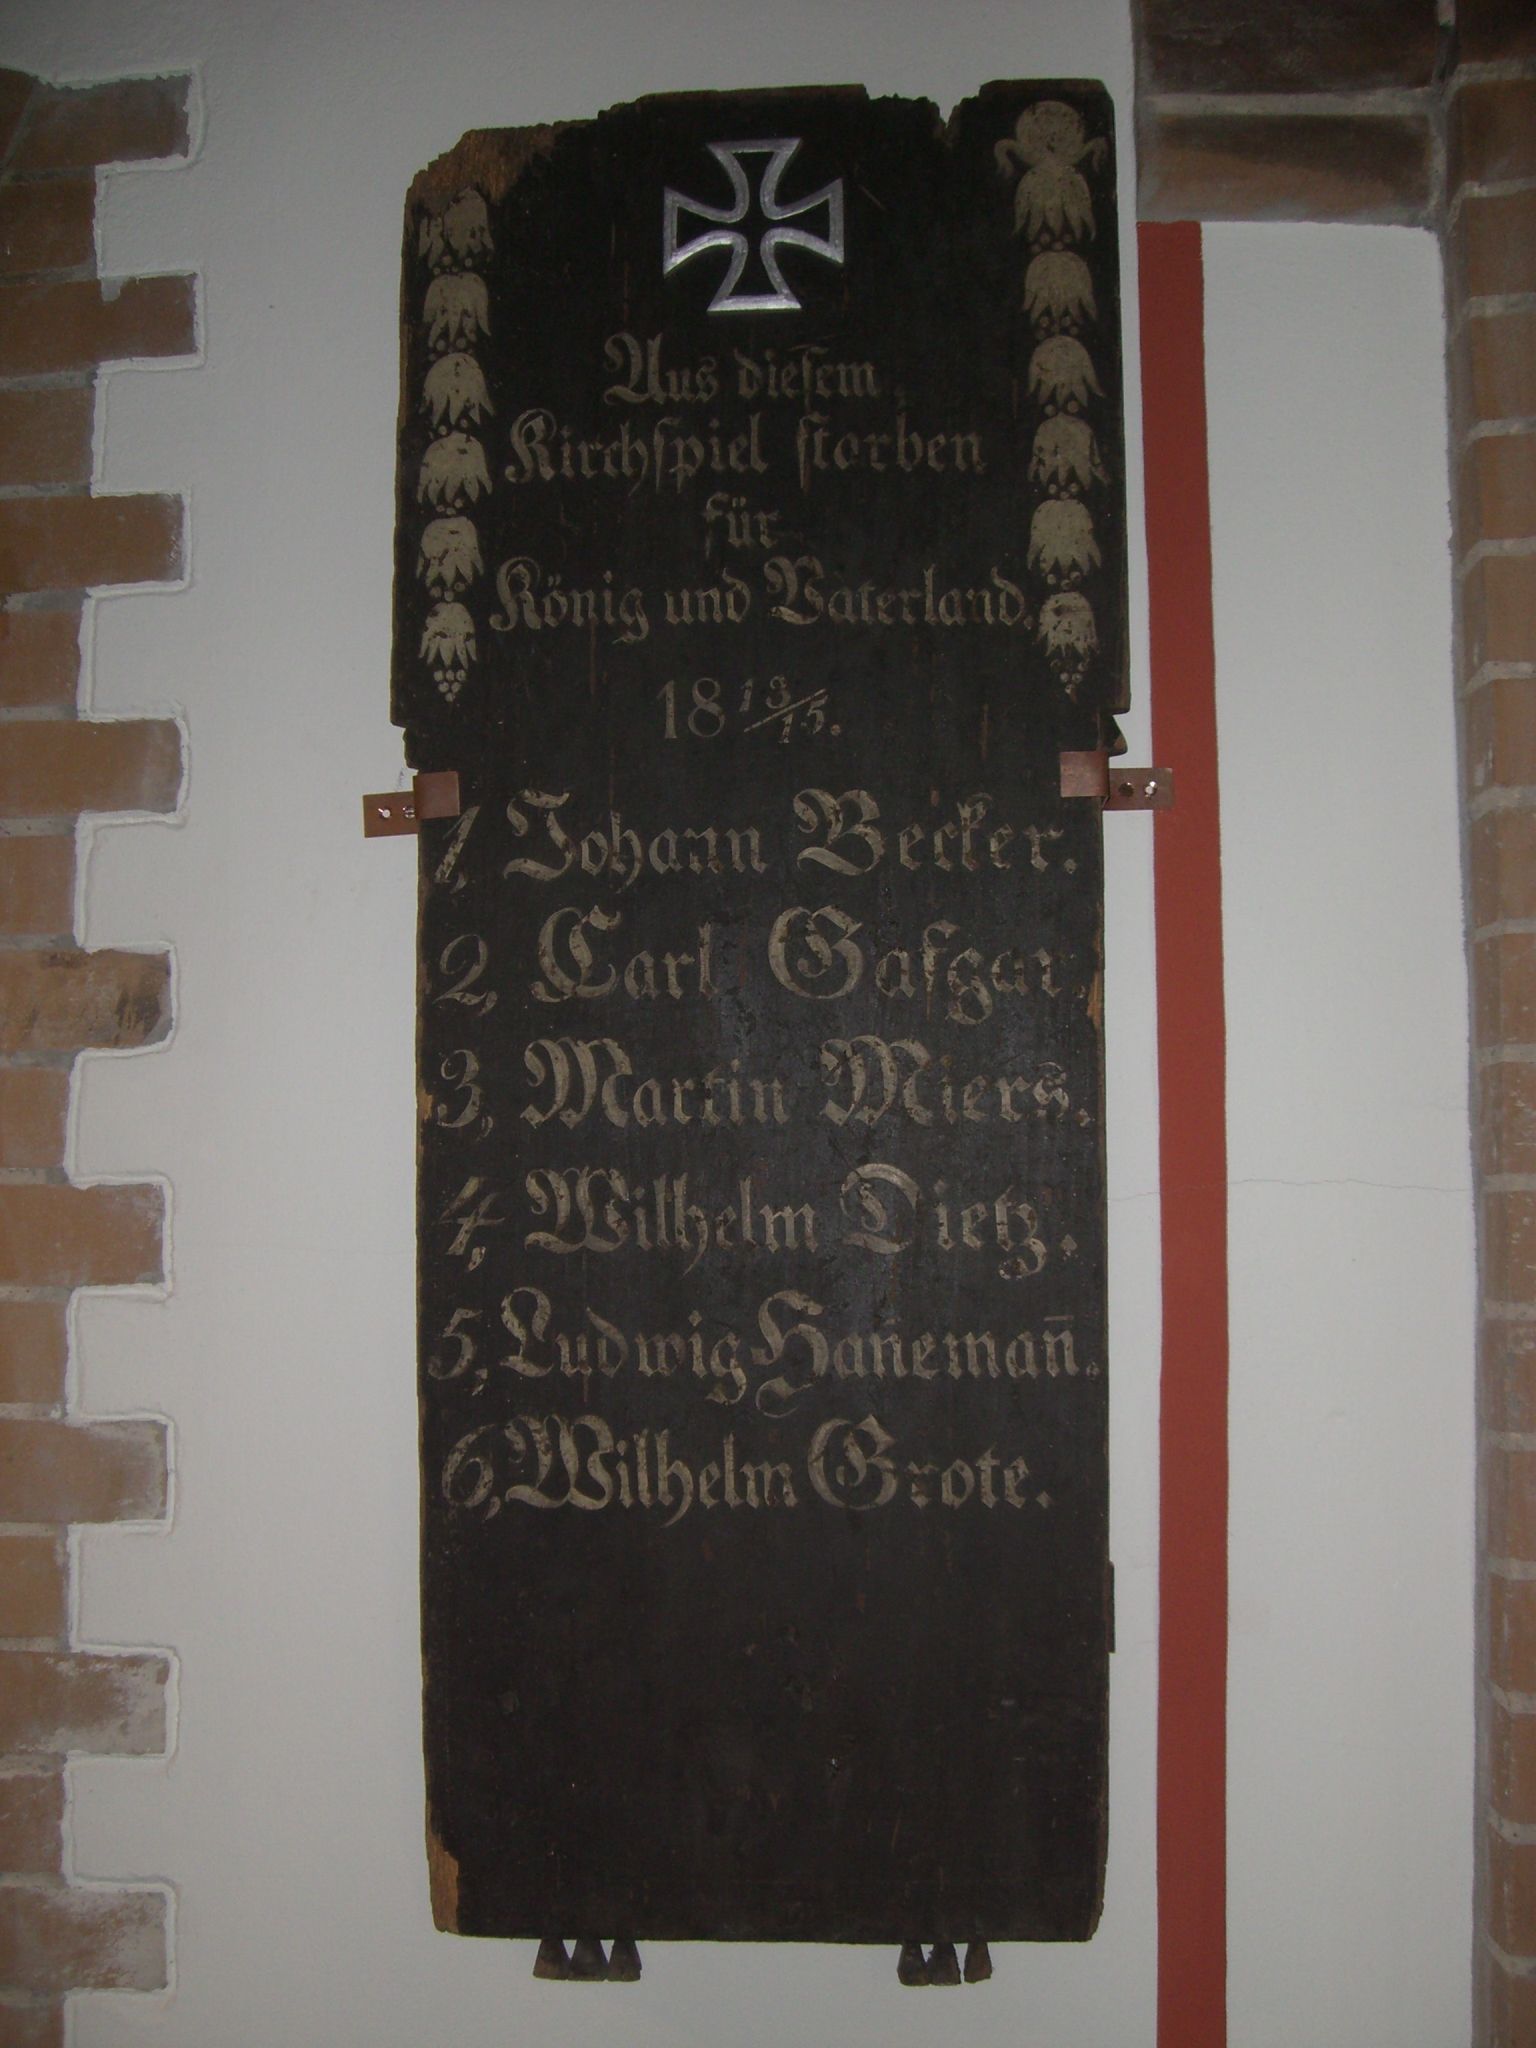 Aus diesem
Kirchspiel storben
für
König und Vaterland.
18 13/15.
1, Johann Becker.
2, Carl Gasgar.
3, Martin Miers.
4, Wilhelm Dietz.
5, Ludwig Han̄eman̄.
6, Wilhelm Grote.